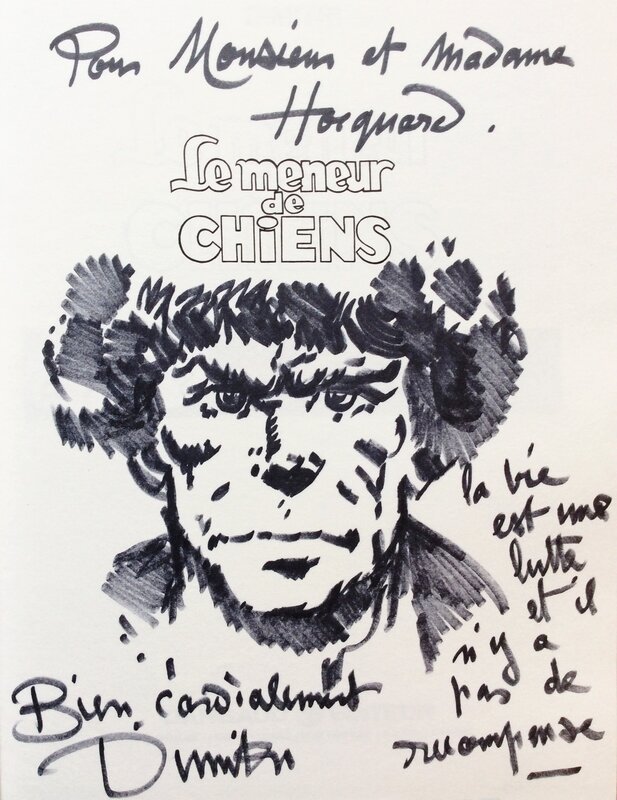 Pour Monsieur et Madame
Hocquard.
Le meneur
de
CHiENS
la vie
est une
lutte
et il
n'y a
pas de
recompense
Bien cordialement
Dimitri